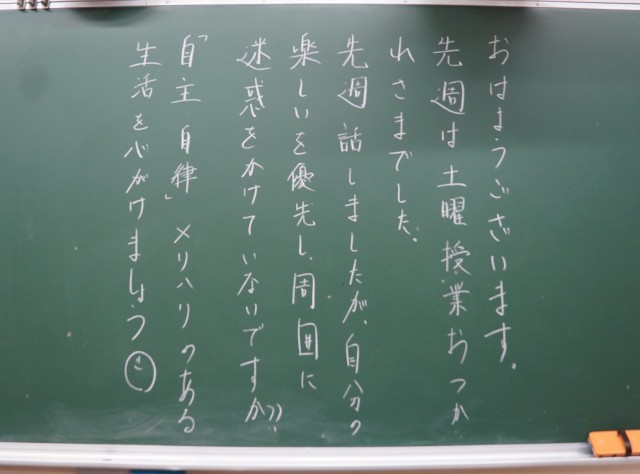 おはようございます。
先週は土曜授業おつか
れさまでした。
先週話しましたが、自分の
楽しいを優先し、周囲に
迷惑をかけていないですか??
「自主・自律」メリハリのある
生活を心がけましょう